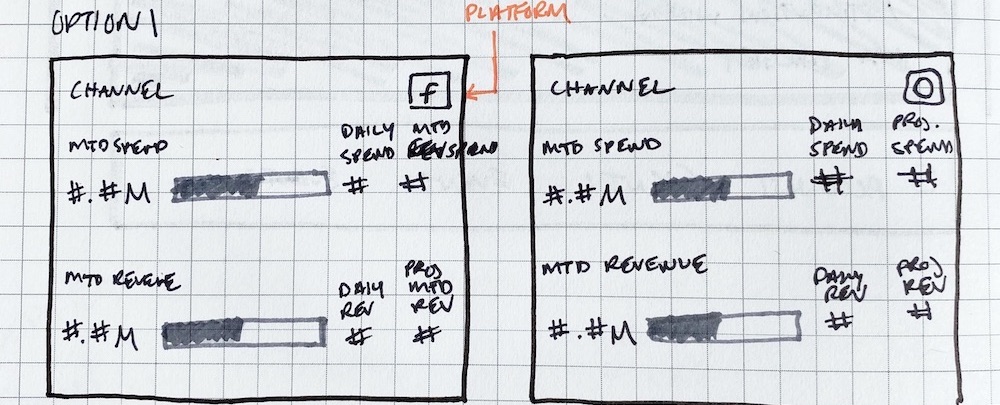 OPTION 1
PLATFORM
CHANNEL
f
MTD SPEND
DAILY
SPEND
MTD
SPEND
#.#M
#
#
MTD REVEUE
DAILY
REV
PROJ
MTD
REV
#.#M
#
#
CHANNEL
MTD SPEND
DAILY
SPEND
PROJ.
SPEND
#.#M
#
#
MTD REVENUE
DAILY
REV
PROJ
REV
#.#M
#
#